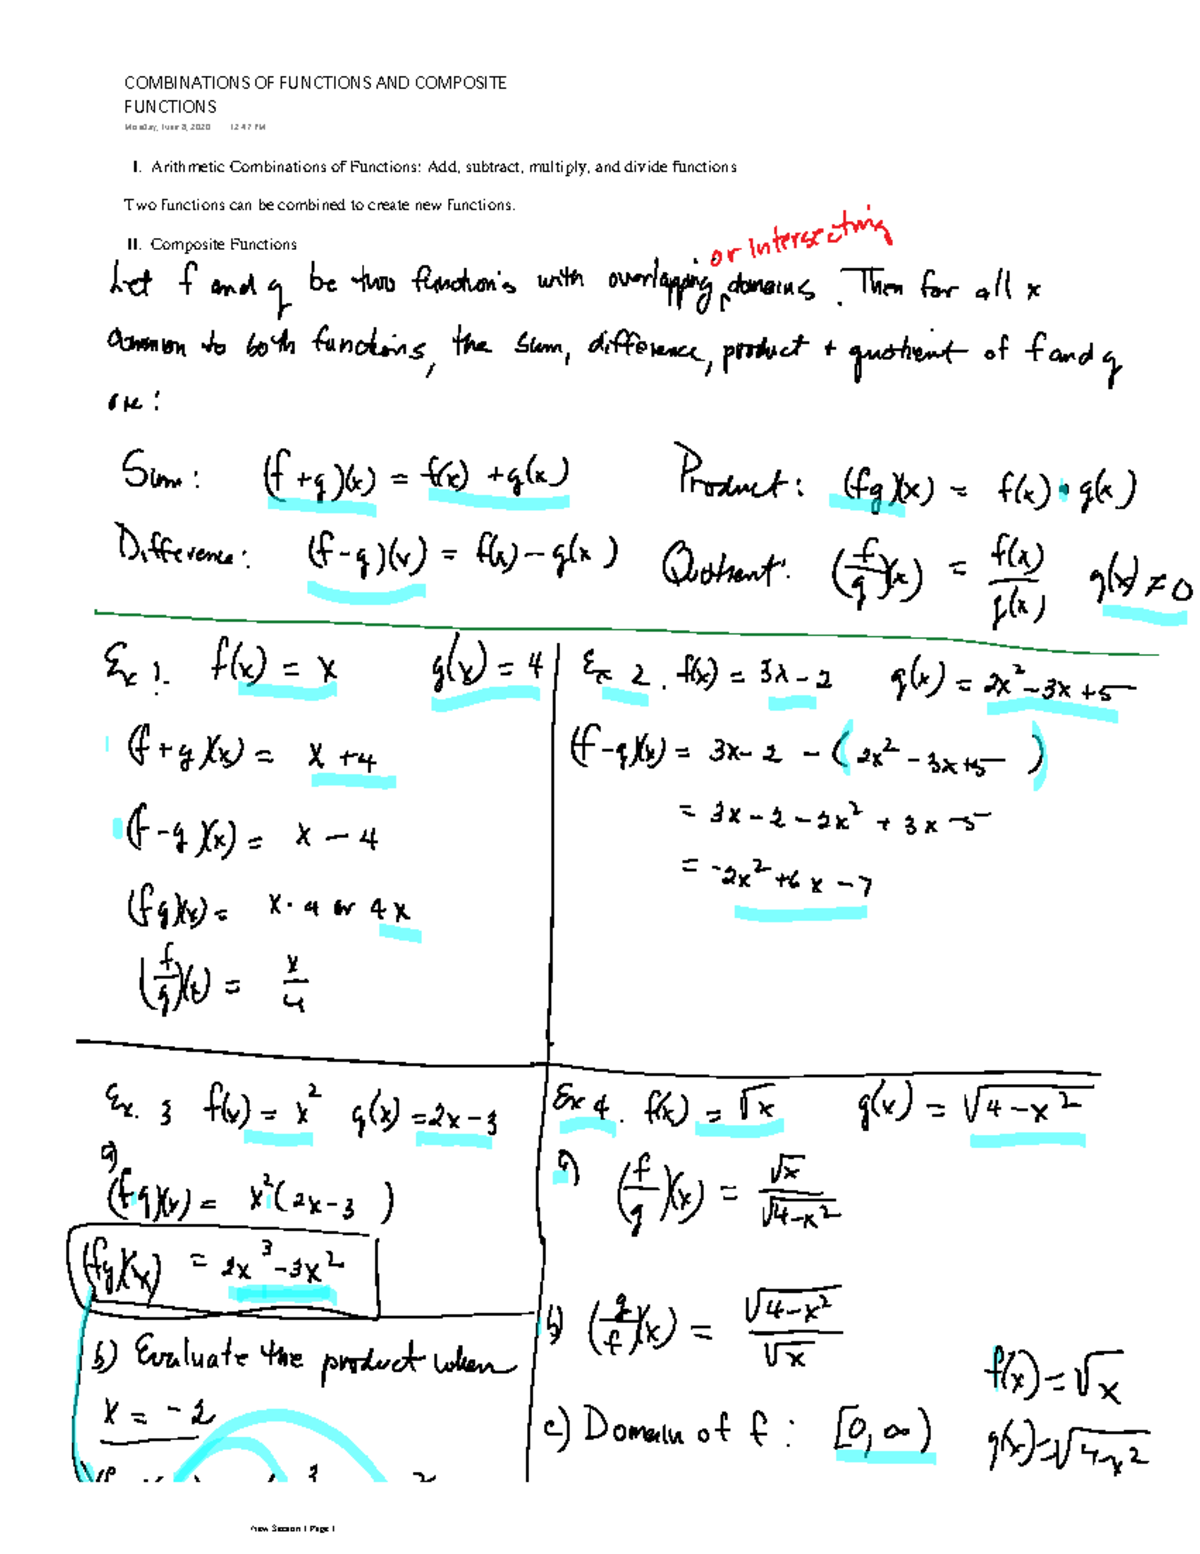 COMBINATIONS OF FUNCTIONS AND COMPOSITE
FUNCTIONS
Monday, June 8, 2020 12:47 PM
I. Arithmetic Combinations of Functions: Add, subtract, multiply, and divide functions
Two functions can be combined to create new functions.
II. Composite Functions
or intersecting
Let f and g be two functions with overlapping, domains. Then for all x
common to both functions, the sum, difference, product + quotient of f and g
are:
Sum: (f+g)(x) = f(x) + g(x)
Product: (fg)(x) = f(x) · g(x)
Difference: (f-g)(x) = f(x) - g(x)
Quotient: (f/g)(x) = f(x)/g(x) g(x) ≠ 0
Ex 1. f(x) = x g(x) = 4
(f+g)(x) = x + 4
(f-g)(x) = x - 4
(fg)(x) = x · 4 or 4x
(f/g)(x) = x/4
Ex 2. f(x) = 3x - 2 g(x) = 2x² - 3x + 5
(f-g)(x) = 3x - 2 - (2x² - 3x + 5)
= 3x - 2 - 2x² + 3x - 5
= -2x² + 6x - 7
Ex. 3 f(x) = x² g(x) = 2x - 3
a)
(fg)(x) = x²(2x - 3)
(fg)(x) = 2x³ - 3x²
b) Evaluate the product when
x = -2
Ex 4. f(x) = √x g(x) = √4-x²
a) (f/g)(x) = √x/√4-x²
b) (g/f)(x) = √4-x²/√x
f(x) = √x
c) Domain of f: [0, ∞)
g(x) = √4-x²
New Section 1 Page 1